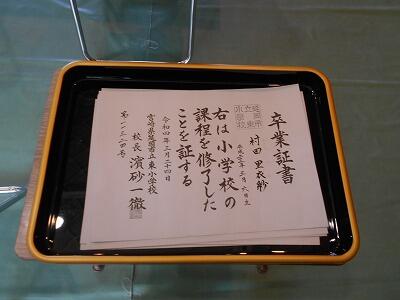 卒業証書
村田 里衣紗
右は小学校の
課程を修了した
ことを証する
令和四年三月二十四日
宮崎県延岡市立東小学校
校長 濱砂一徹